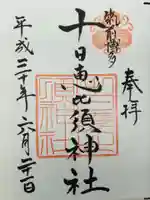 奉拝
筑前博多
十日恵比須神社
平成三十年六月二十一日